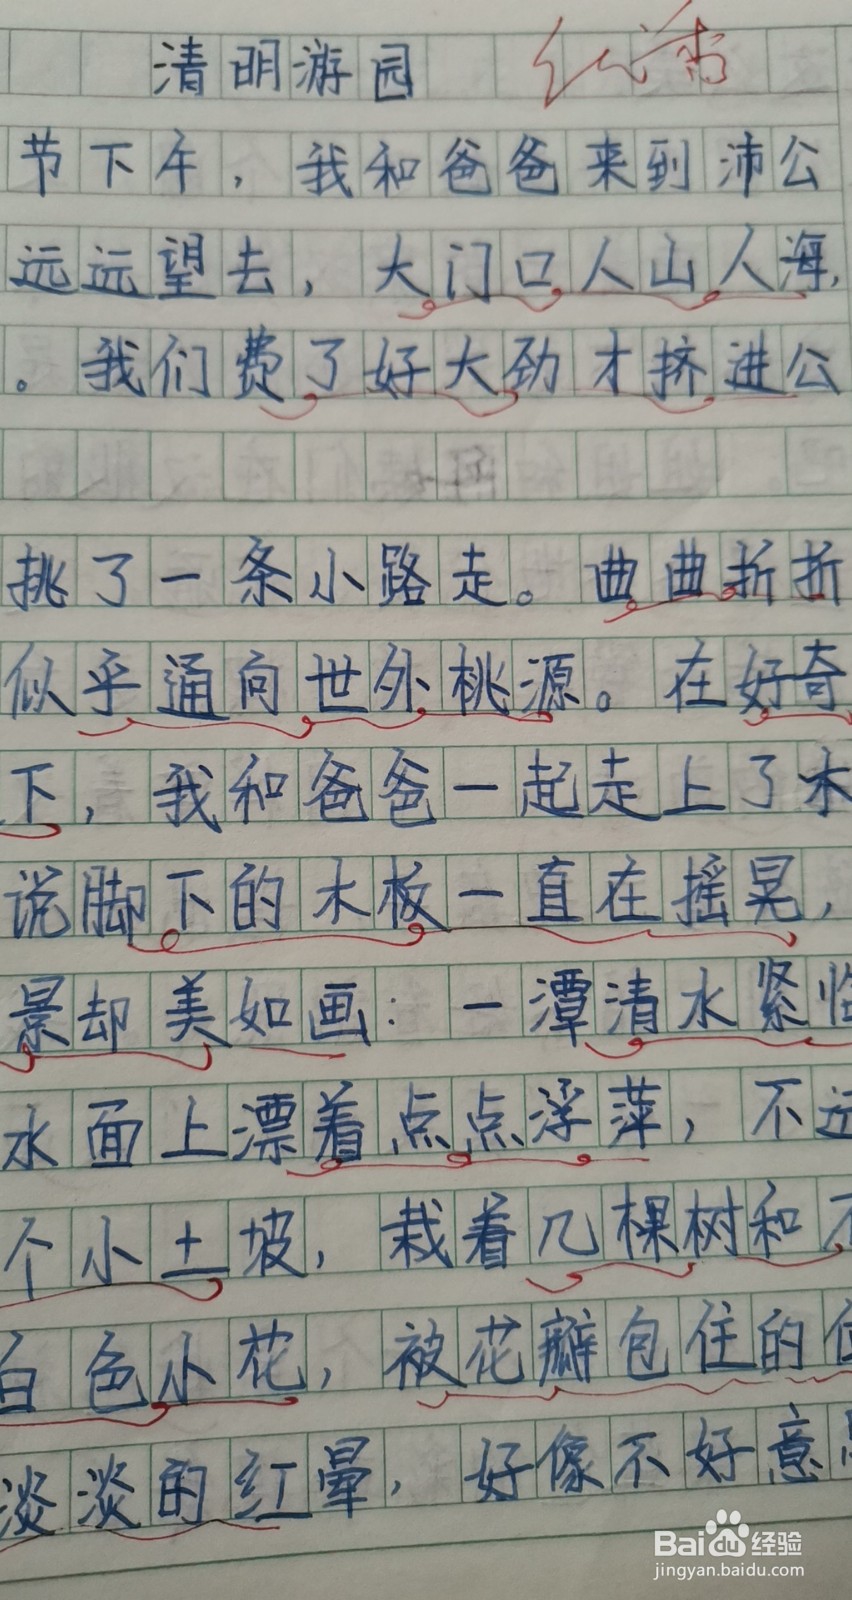 清明游园
节下午，我和爸爸来到沛公
远远望去，大门口人山人海，
。我们费了好大劲才挤进公
挑了一条小路走。曲曲折折
似乎通向世外桃源。在好奇
下，我和爸爸一起走上了木
说脚下的木板一直在摇晃，
景却美如画：一潭清水紧临
水面上漂着点点浮萍，不远
个小土坡，栽着几棵树和不
白色小花，被花瓣包住的
淡淡的红晕，好像不好意思
Baidu经验
jingyan.baidu.com